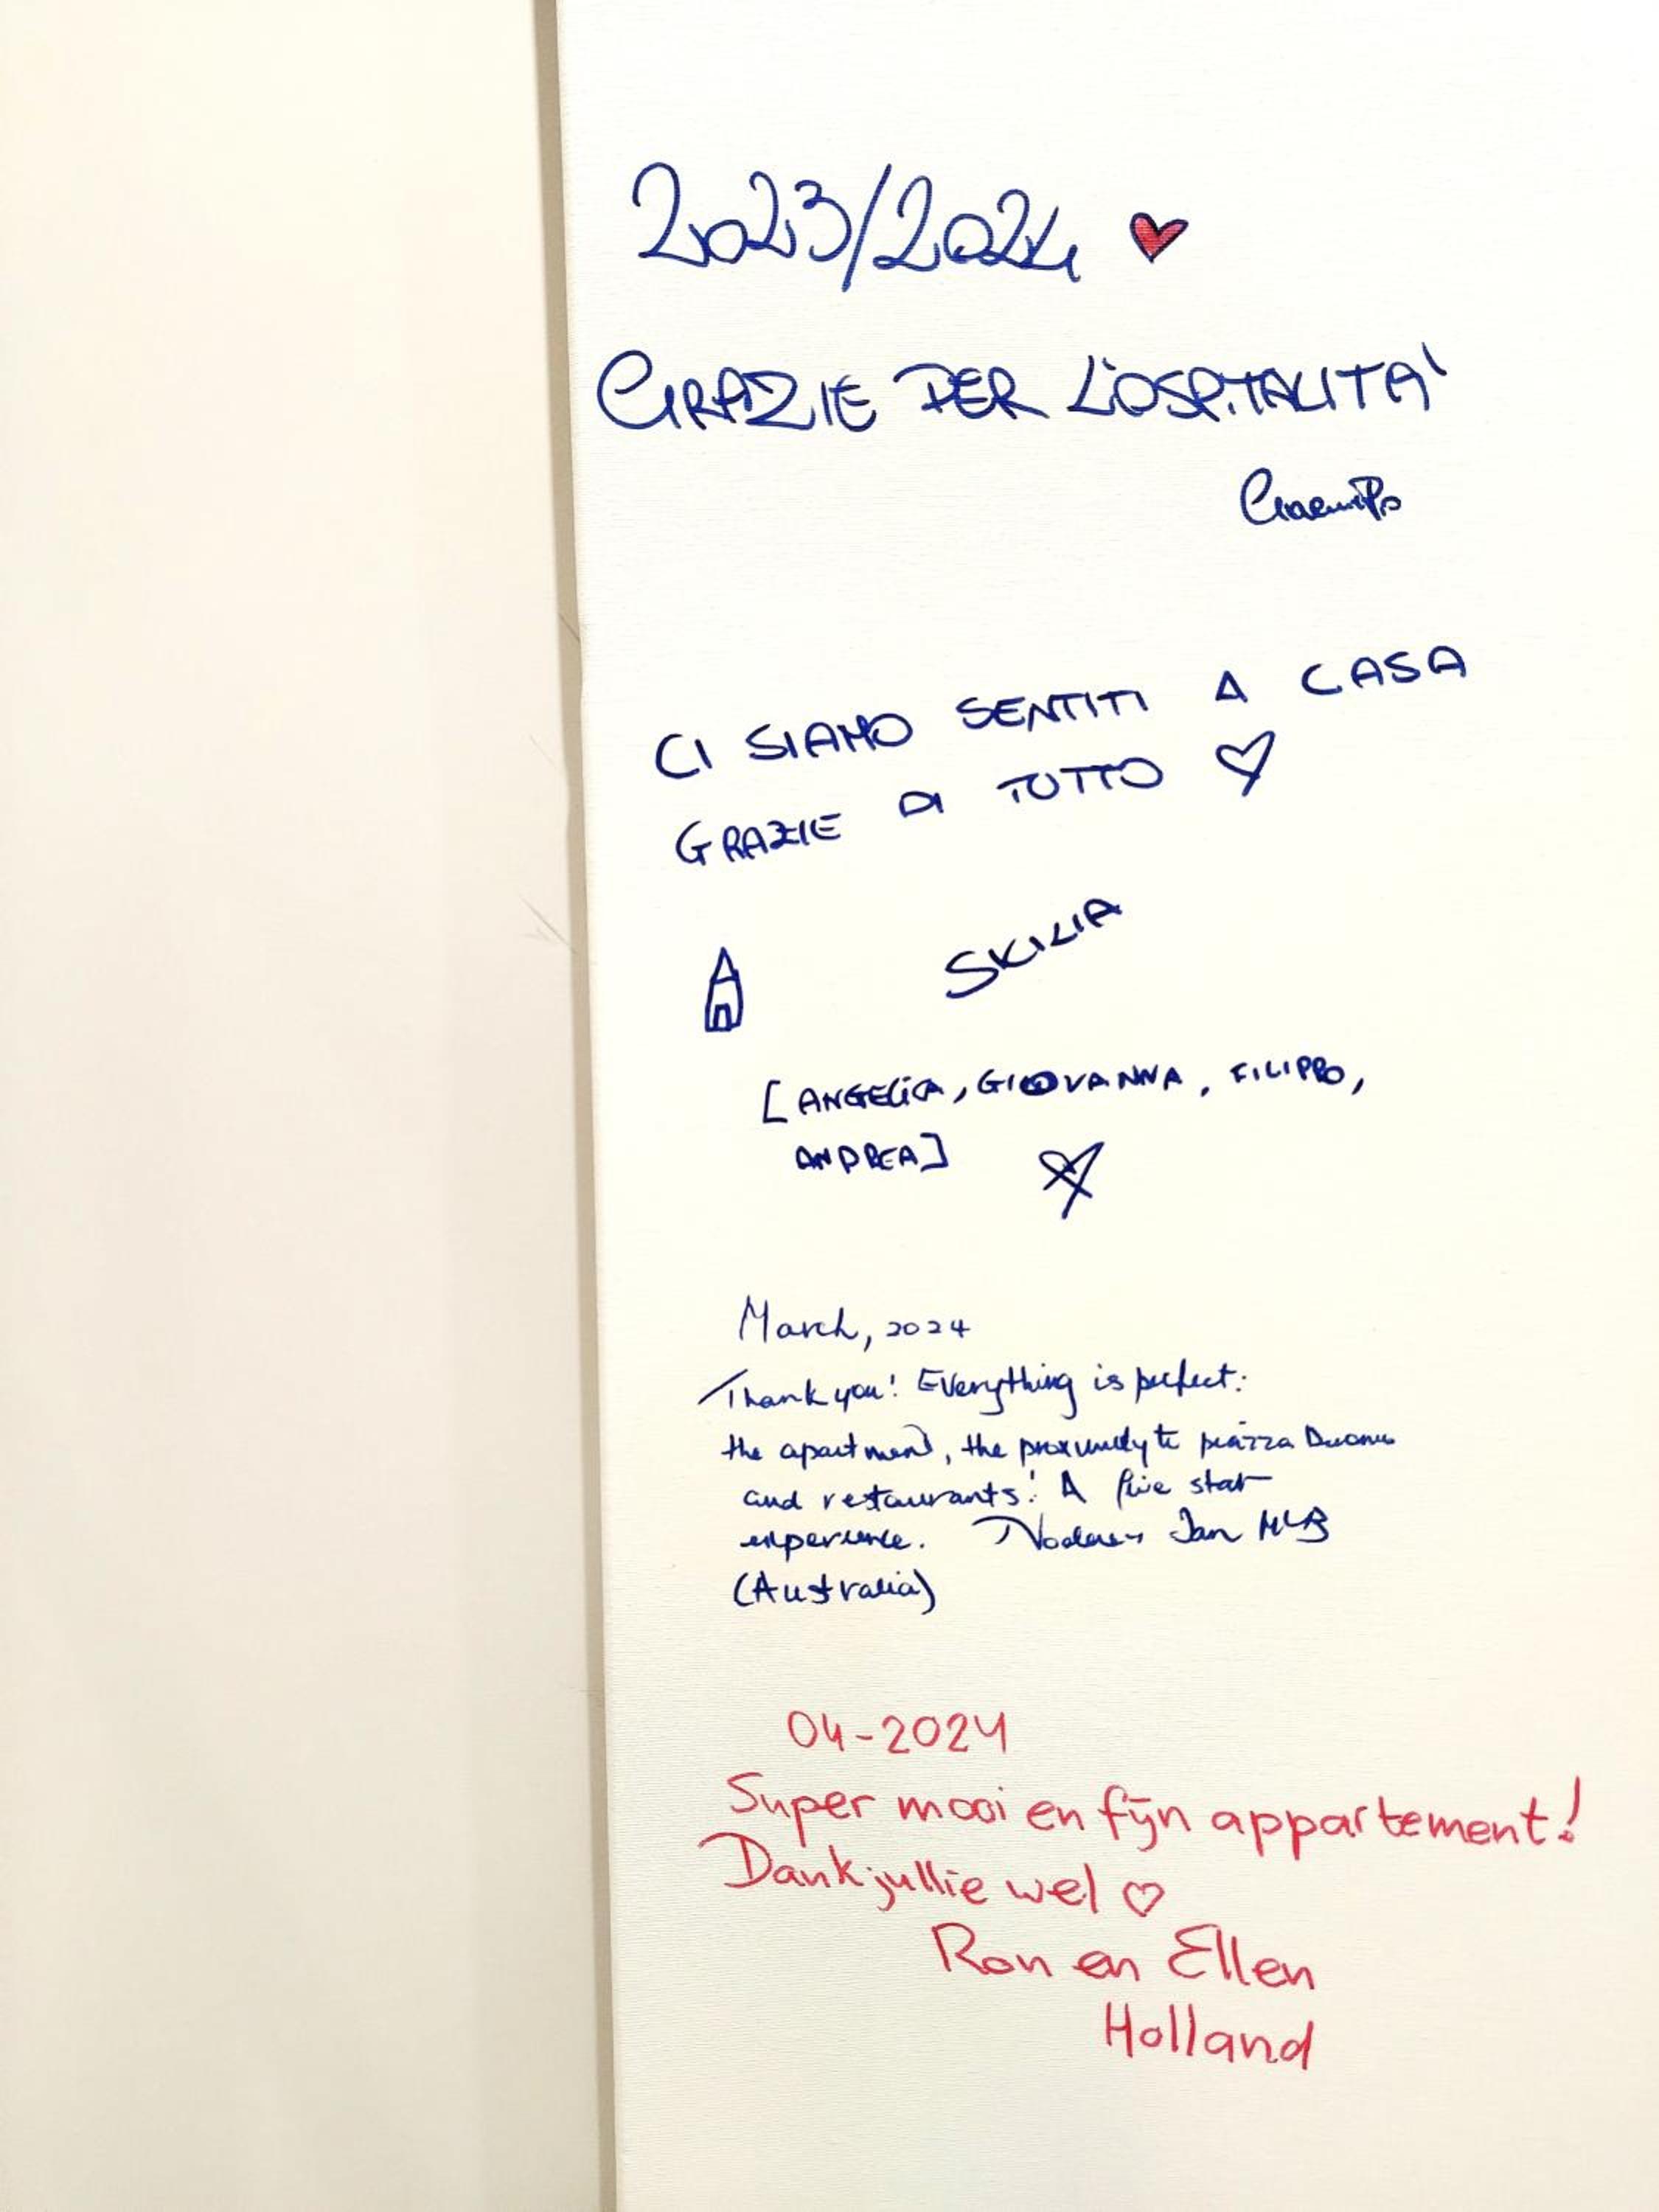 2023/2024
GRAZIE PER L'OSPITALITA'
CI SIAMO SENTITI A CASA
GRAZIE DI TUTTO
SICILIA
[ANGELICA, GIOVANNA, FILIPPO,
ANDREA]
March, 2024
Thank you! Everything is perfect:
the apartment, the proximity to piazza Duomo
and restaurants! A five star
experience. Jan
(Australia)
04-2024
Super mooi en fijn appartement!
Dank jullie wel
Ron en Ellen
Holland